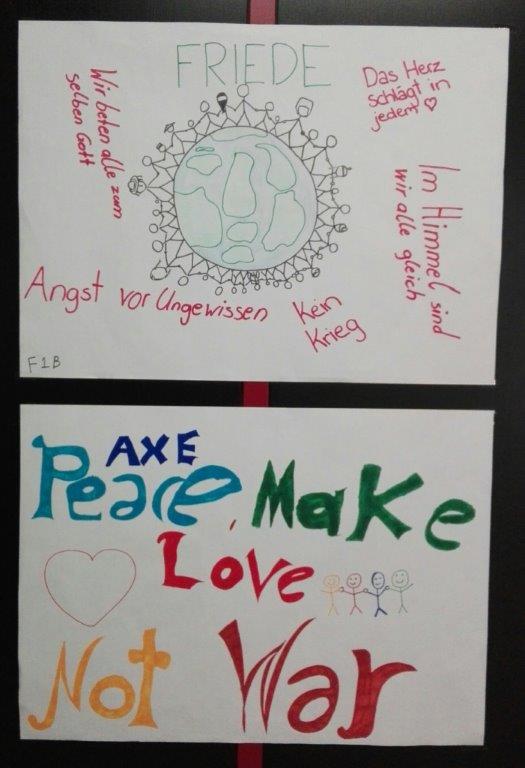 FRIEDE
Wir beten alle zum
selben Gott
Das Herz
schlägt in
jedem
Im Himmel sind
wir alle gleich
Angst vor Ungewissen
Kein
Krieg
F1B
AXE
Peace, Make
Love
Not War